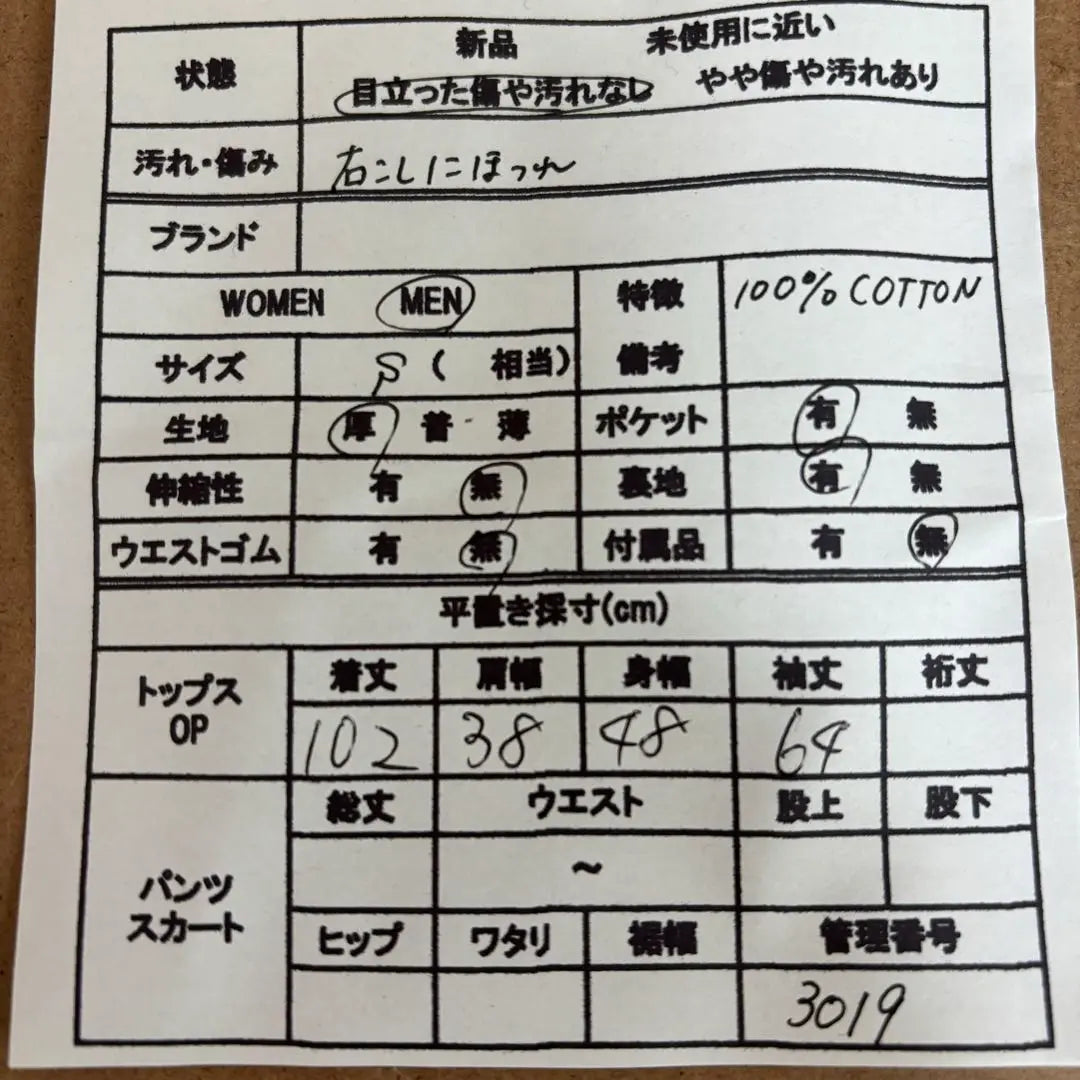 状態 新品 未使用に近い
目立った傷や汚れなし やや傷や汚れあり
汚れ・傷み 右こしにほつれ
ブランド
WOMEN MEN 特徴 100% COTTON
サイズ S ( 相当) 備考
生地 厚 普 薄 ポケット 有 無
伸縮性 有 無 裏地 有 無
ウエストゴム 有 無 付属品 有 無
平置き採寸(cm)
トップス OP 着丈 肩幅 身幅 袖丈 裄丈
102 38 48 64
パンツ スカート 総丈 ウエスト 股上 股下
～
ヒップ ワタリ 裾幅 管理番号
3019